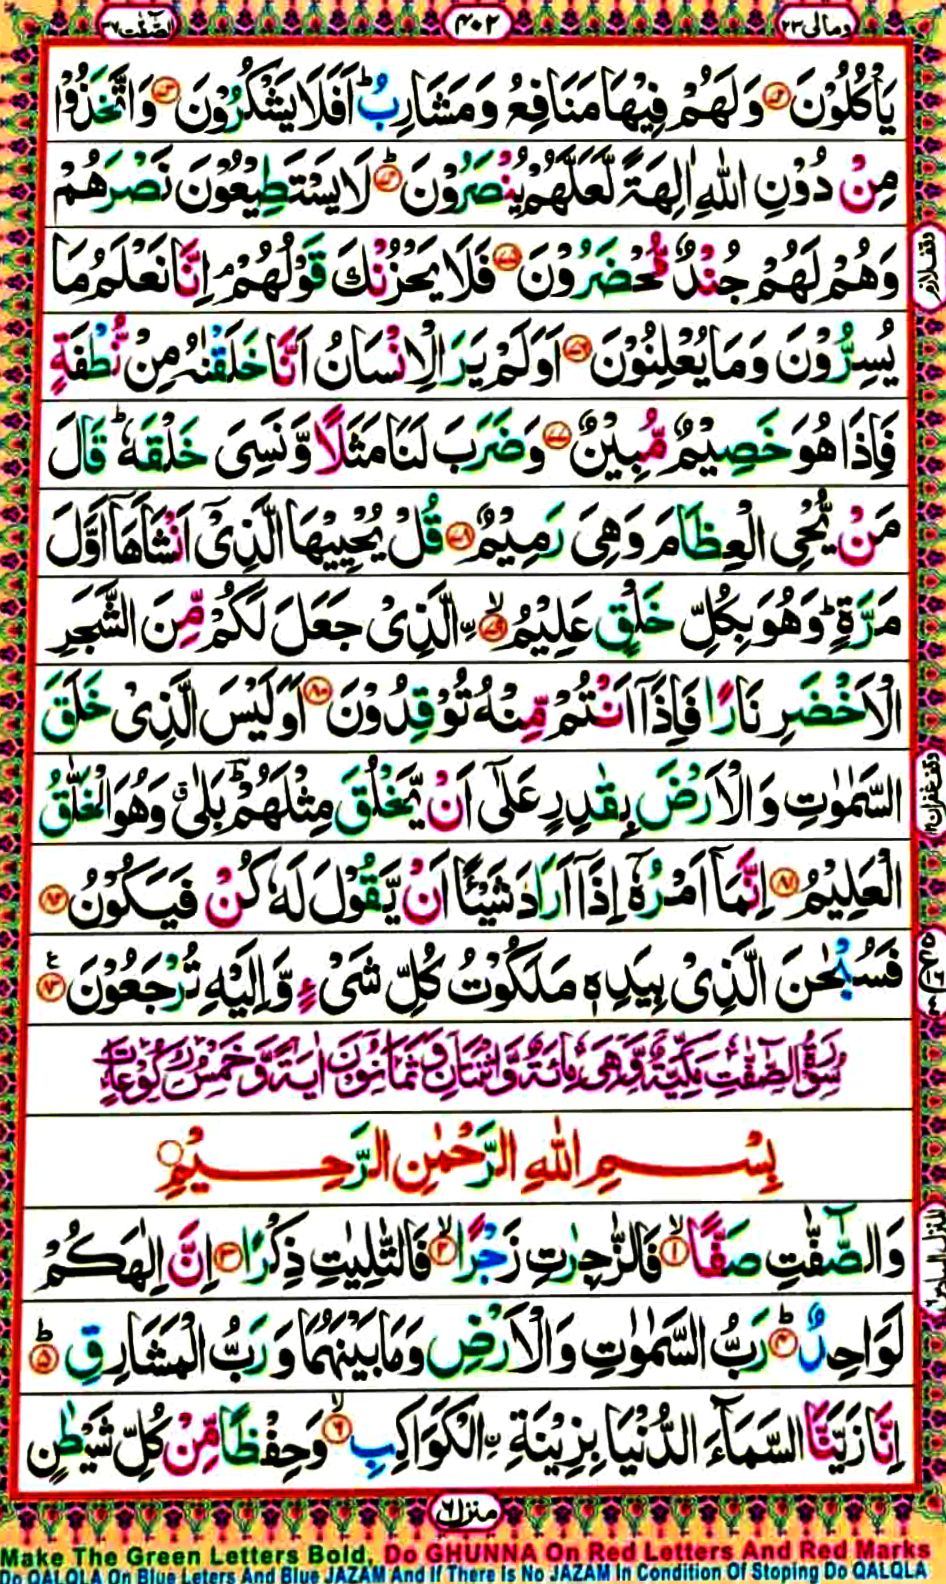 الصّٰٓفّٰت ٣٧ ٤٠٢ ومالي ٢٣
يَاْكُلُوْنَ ﴿٧٢﴾ وَلَهُمْ فِيْهَا مَنَافِعُ وَمَشَارِبُ ؕ اَفَلَا يَشْكُرُوْنَ ﴿٧٣﴾ وَاتَّخَذُوْا
مِنْ دُوْنِ اللّٰهِ اٰلِهَةً لَّعَلَّهُمْ يُنْصَرُوْنَ ﴿٧٤﴾ؕ لَا يَسْتَطِيْعُوْنَ نَصْرَهُمْ
وَهُمْ لَهُمْ جُنْدٌ مُّحْضَرُوْنَ ﴿٧٥﴾ فَلَا يَحْزُنْكَ قَوْلُهُمْ ۘ اِنَّا نَعْلَمُ مَا
وقف لازم
يُسِرُّوْنَ وَمَا يُعْلِنُوْنَ ﴿٧٦﴾ اَوَلَمْ يَرَ الْاِنْسَانُ اَنَّا خَلَقْنٰهُ مِنْ نُّطْفَةٍ
فَاِذَا هُوَ خَصِيْمٌ مُّبِيْنٌ ﴿٧٧﴾ وَضَرَبَ لَنَا مَثَلًا وَّنَسِيَ خَلْقَهٗ ؕ قَالَ
مَنْ يُّحْيِ الْعِظَامَ وَهِيَ رَمِيْمٌ ﴿٧٨﴾ قُلْ يُحْيِيْهَا الَّذِيْٓ اَنْشَاَهَآ اَوَّلَ
مَرَّةٍ ؕ وَهُوَ بِكُلِّ خَلْقٍ عَلِيْمُ ﴿٧٩﴾ۙ ۨالَّذِيْ جَعَلَ لَكُمْ مِّنَ الشَّجَرِ
الْاَخْضَرِ نَارًا فَاِذَآ اَنْتُمْ مِّنْهُ تُوْقِدُوْنَ ﴿٨٠﴾ اَوَلَيْسَ الَّذِيْ خَلَقَ
السَّمٰوٰتِ وَالْاَرْضَ بِقٰدِرٍ عَلٰٓى اَنْ يَّخْلُقَ مِثْلَهُمْ ؕ بَلٰى ۗ وَهُوَ الْخَلّٰقُ
وقف غفران
الْعَلِيْمُ ﴿٨١﴾ اِنَّمَآ اَمْرُهٗٓ اِذَآ اَرَادَ شَيْئًا اَنْ يَّقُوْلَ لَهٗ كُنْ فَيَكُوْنُ ﴿٨٢﴾
فَسُبْحٰنَ الَّذِيْ بِيَدِهٖ مَلَكُوْتُ كُلِّ شَيْءٍ وَّاِلَيْهِ تُرْجَعُوْنَ ﴿٨٣﴾
سُوْرَةُ الصّٰٓفّٰتِ مَكِّيَّةٌ وَّهِيَ مِائَةٌ وَّاثْنَتَانِ وَثَمَانُوْنَ اٰيَةً وَّخَمْسُ رُكُوْعَاتٍ
بِسْمِ اللّٰهِ الرَّحْمٰنِ الرَّحِيْمِ
وَالصّٰٓفّٰتِ صَفًّا ﴿١﴾ۙ فَالزّٰجِرٰتِ زَجْرًا ﴿٢﴾ۙ فَالتّٰلِيٰتِ ذِكْرًا ﴿٣﴾ۙ اِنَّ اِلٰهَكُمْ
لَوَاحِدٌ ﴿٤﴾ؕ رَبُّ السَّمٰوٰتِ وَالْاَرْضِ وَمَا بَيْنَهُمَا وَرَبُّ الْمَشَارِقِ ﴿٥﴾ؕ
اِنَّا زَيَّنَّا السَّمَآءَ الدُّنْيَا بِزِيْنَةِ ۨالْكَوَاكِبِ ﴿٦﴾ۙ وَحِفْظًا مِّنْ كُلِّ شَيْطٰنٍ
منزل ٦
Make The Green Letters Bold, Do GHUNNA On Red Letters And Red Marks
Do QALQLA On Blue Leters And Blue JAZAM And If There Is No JAZAM In Condition Of Stoping Do QALQLA